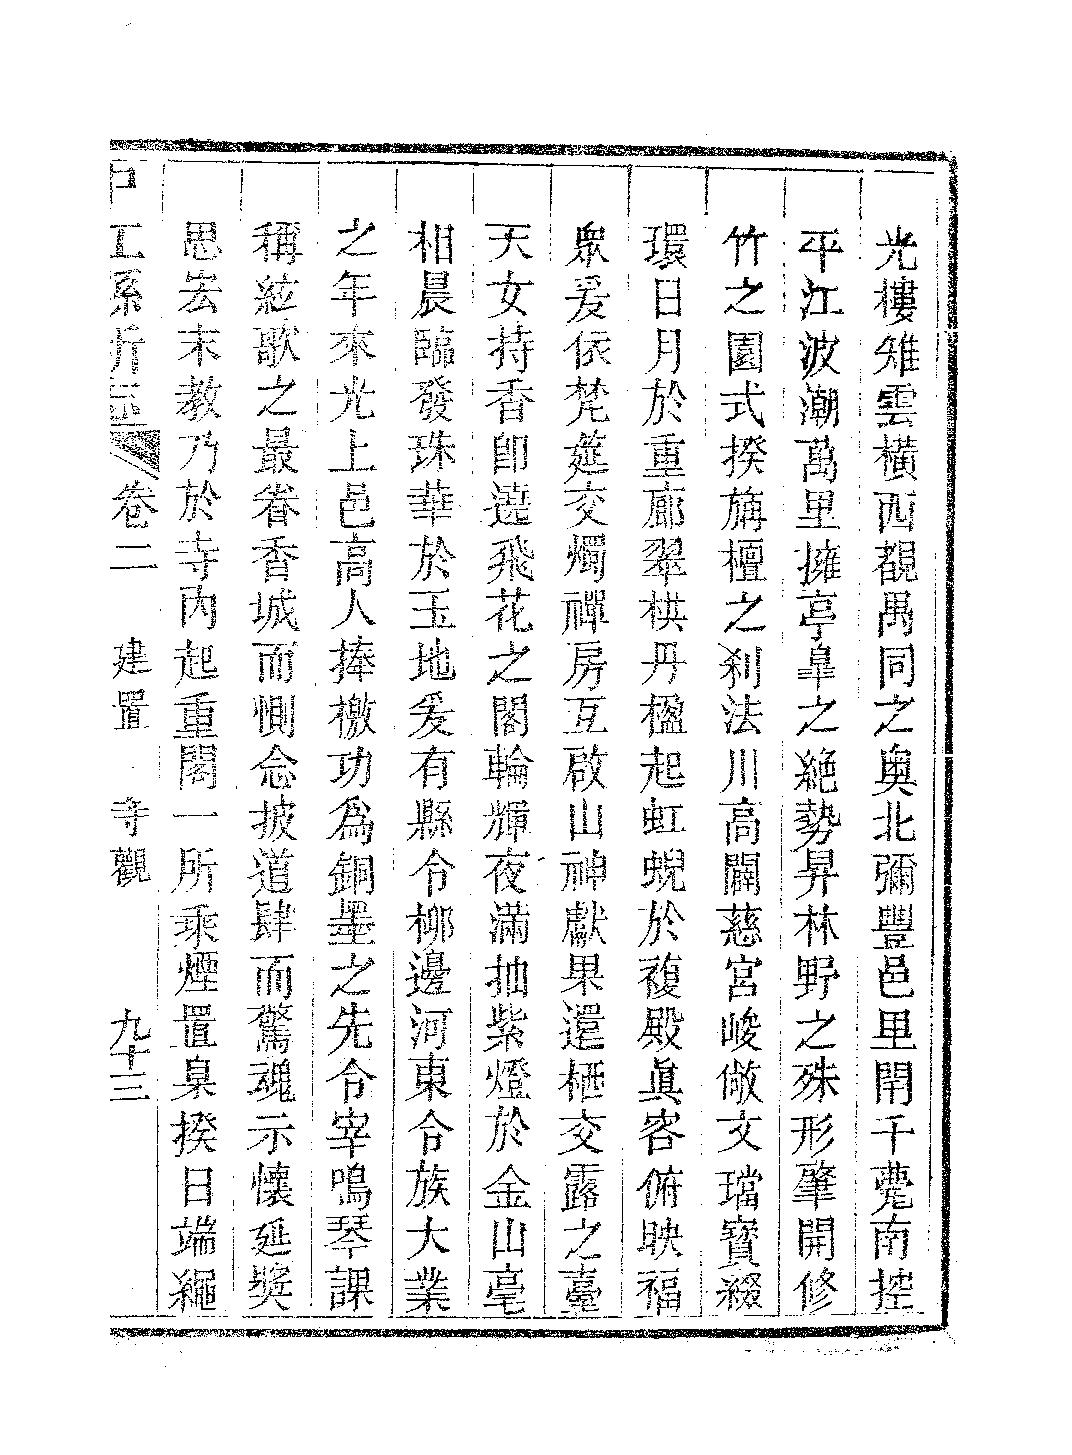 光樓雉雲橫西覩禺同之奧北彌豐邑里閈千甍南控
平江波潮萬里擁亭皐之絕勢昇林野之殊形肇開修
竹之園式揆旃檀之刹法川高闢慈宮峻敞文璫寶綴
環日月於重廊翠栱丹楹起虹蜺於複殿眞容俯映福
衆爰依梵筵交燭禪房互啟山神獻果還栖交露之臺
天女持香卽遶飛花之閣輪輝夜滿抽紫燈於金山亳
相晨臨發珠華於玉地爰有縣令柳邊河東令族大業
之年來光上邑高人捧檄功爲銅墨之先令宰鳴琴課
稱絃歌之最眷香城而惻念披道肆而驚魂示懷延奬
思宏末教乃於寺內起重閣一所乘煙置臬揆日端繩
中江縣新志 卷二 建置 寺觀 九十三